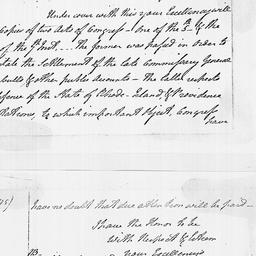 Under cover with this your Excellency will
Copies of two Acts of Congress - One of the 5th & the
of the 9th Inst. - The former was passed in order to
the Settlement of the late Commissary General
& other public accounts - The latter respects
fence of the State of Rhode-Island & Providence
tations, to which important Object, Congress
have
have no doubt that due attention will be paid -
I have the Honor to be
with Respect & Esteem
your Excellency's